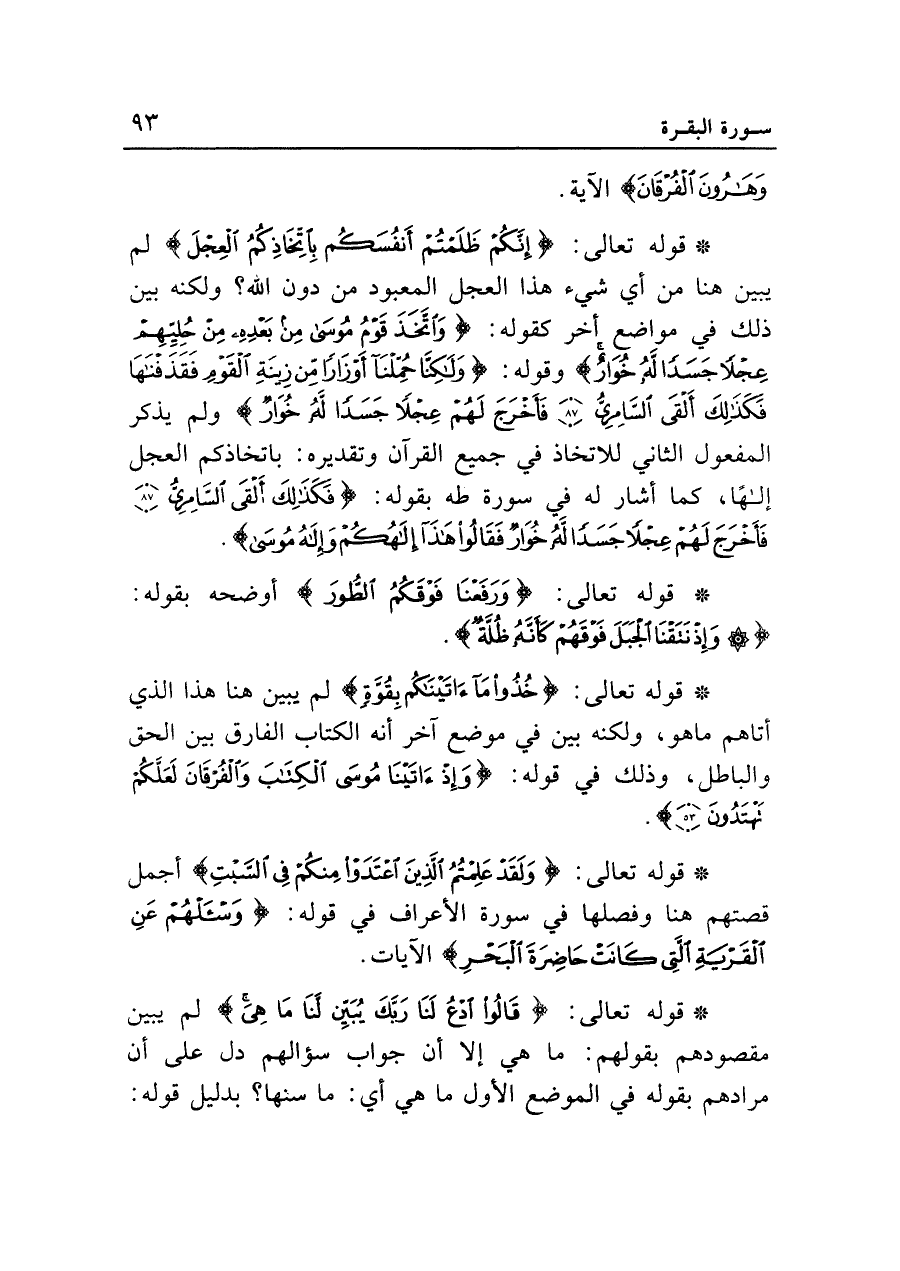 سورة البقرة ٩٣
وَهَٰرُونَ ٱلْفُرْقَانَ﴾ الآية.
* قوله تعالى: ﴿ إِنَّكُمْ ظَلَمْتُمْ أَنفُسَكُم بِٱتِّخَاذِكُمُ ٱلْعِجْلَ ﴾ لم
يبين هنا من أي شيء هذا العجل المعبود من دون الله؟ ولكنه بين
ذلك في مواضع أخر كقوله: ﴿ وَٱتَّخَذَ قَوْمُ مُوسَىٰ مِنۢ بَعْدِهِۦ مِنْ حُلِيِّهِمْ
عِجْلًا جَسَدًا لَّهُۥ خُوَارٌۚ﴾ وقوله: ﴿ وَلَٰكِنَّا حُمِّلْنَآ أَوْزَارًا مِّن زِينَةِ ٱلْقَوْمِ فَقَذَفْنَٰهَا
فَكَذَٰلِكَ أَلْقَى ٱلسَّامِرِىُّ ۝٨٧ فَأَخْرَجَ لَهُمْ عِجْلًا جَسَدًا لَّهُۥ خُوَارٌ ﴾ ولم يذكر
المفعول الثاني للاتخاذ في جميع القرآن وتقديره: باتخاذكم العجل
إلـٰهًا، كما أشار له في سورة طه بقوله: ﴿ فَكَذَٰلِكَ أَلْقَى ٱلسَّامِرِىُّ ۝٨٧
فَأَخْرَجَ لَهُمْ عِجْلًا جَسَدًا لَّهُۥ خُوَارٌ فَقَالُوا۟ هَٰذَآ إِلَٰهُكُمْ وَإِلَٰهُ مُوسَىٰ﴾.
* قوله تعالى: ﴿ وَرَفَعْنَا فَوْقَكُمُ ٱلطُّورَ ﴾ أوضحه بقوله:
﴿ ۞ وَإِذْ نَتَقْنَا ٱلْجَبَلَ فَوْقَهُمْ كَأَنَّهُۥ ظُلَّةٌ﴾.
* قوله تعالى: ﴿ خُذُوا۟ مَآ ءَاتَيْنَٰكُم بِقُوَّةٍ﴾ لم يبين هنا هذا الذي
أتاهم ماهو، ولكنه بين في موضع آخر أنه الكتاب الفارق بين الحق
والباطل، وذلك في قوله: ﴿ وَإِذْ ءَاتَيْنَا مُوسَى ٱلْكِتَٰبَ وَٱلْفُرْقَانَ لَعَلَّكُمْ
تَهْتَدُونَ ۝٥٣ ﴾.
* قوله تعالى: ﴿ وَلَقَدْ عَلِمْتُمُ ٱلَّذِينَ ٱعْتَدَوْا۟ مِنكُمْ فِى ٱلسَّبْتِ﴾ أجمل
قصتهم هنا وفصلها في سورة الأعراف في قوله: ﴿ وَسْـَٔلْهُمْ عَنِ
ٱلْقَرْيَةِ ٱلَّتِى كَانَتْ حَاضِرَةَ ٱلْبَحْرِ﴾ الآيات.
* قوله تعالى: ﴿ قَالُوا۟ ٱدْعُ لَنَا رَبَّكَ يُبَيِّن لَّنَا مَا هِىَۚ ﴾ لم يبين
مقصودهم بقولهم: ما هي إلا أن جواب سؤالهم دل على أن
مرادهم بقوله في الموضع الأول ما هي أي: ما سنها؟ بدليل قوله: